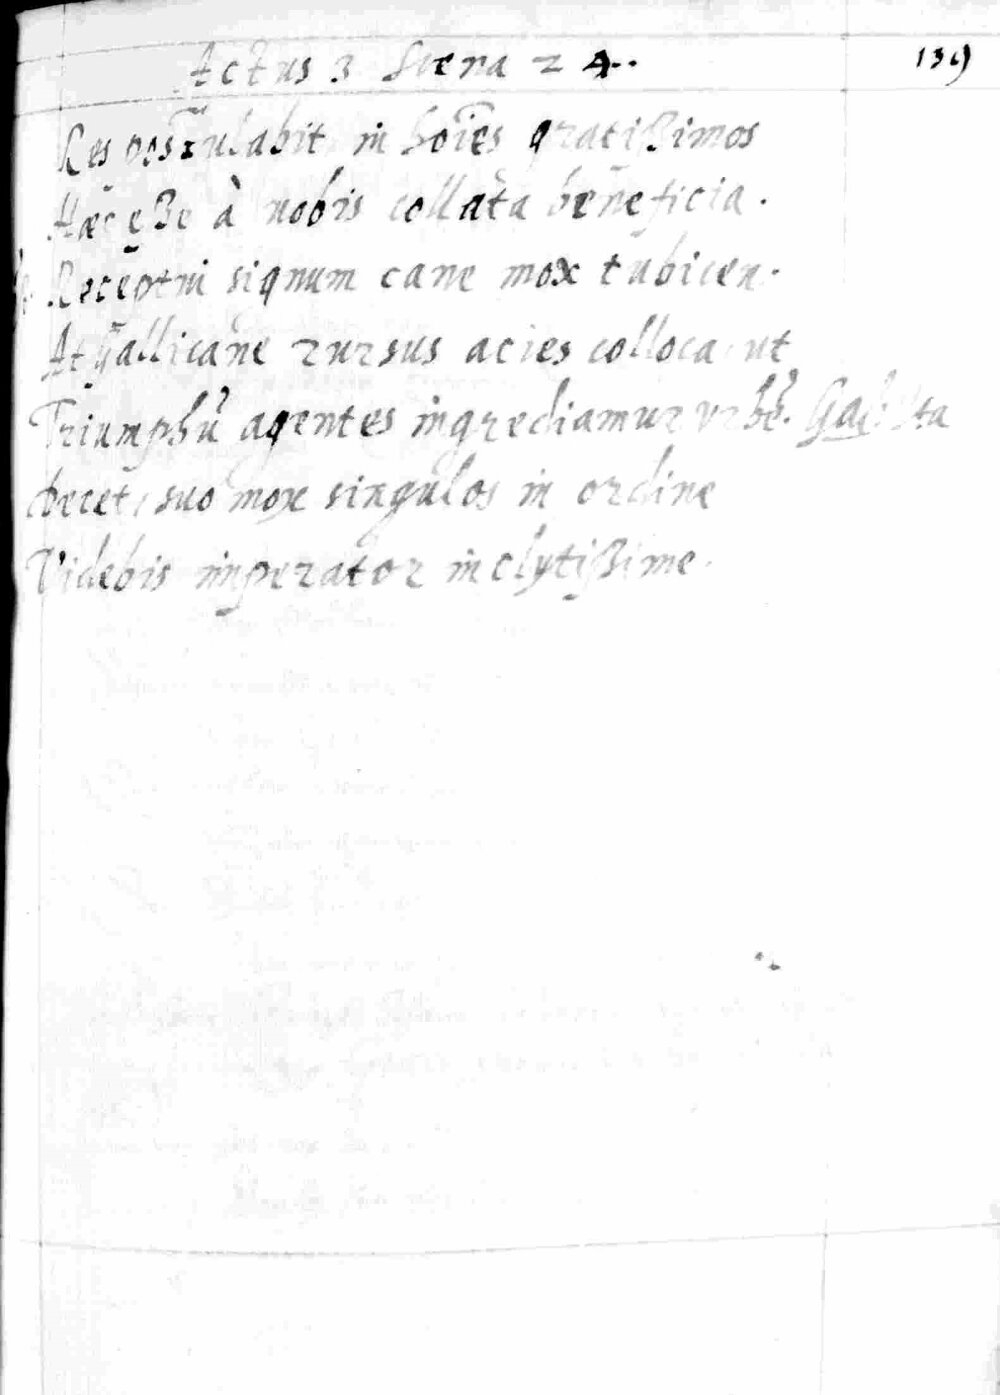 Actus 3 Scena 24. 139
Res postulabit, in hoĩes gratißimos
Hæc eße à nobis collata beneficia.
Receptui signum cane mox tubicen.
At Gallicane rursus acies colloca, ut
Triumphũ agentes ingrediamur vrbẽ. Gal. Ita
decet, suo mox singulos in ordine
Videbis imperator inclytißime.